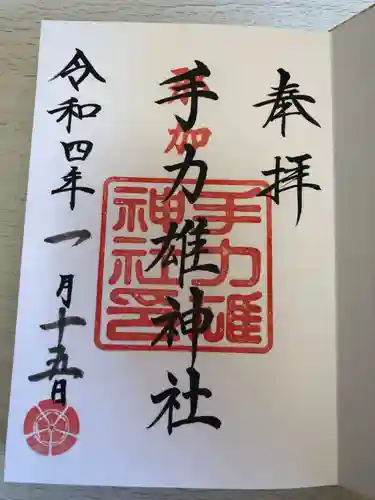 奉拝
那加
手力雄神社
手力雄
神社印
令和四年一月十五日